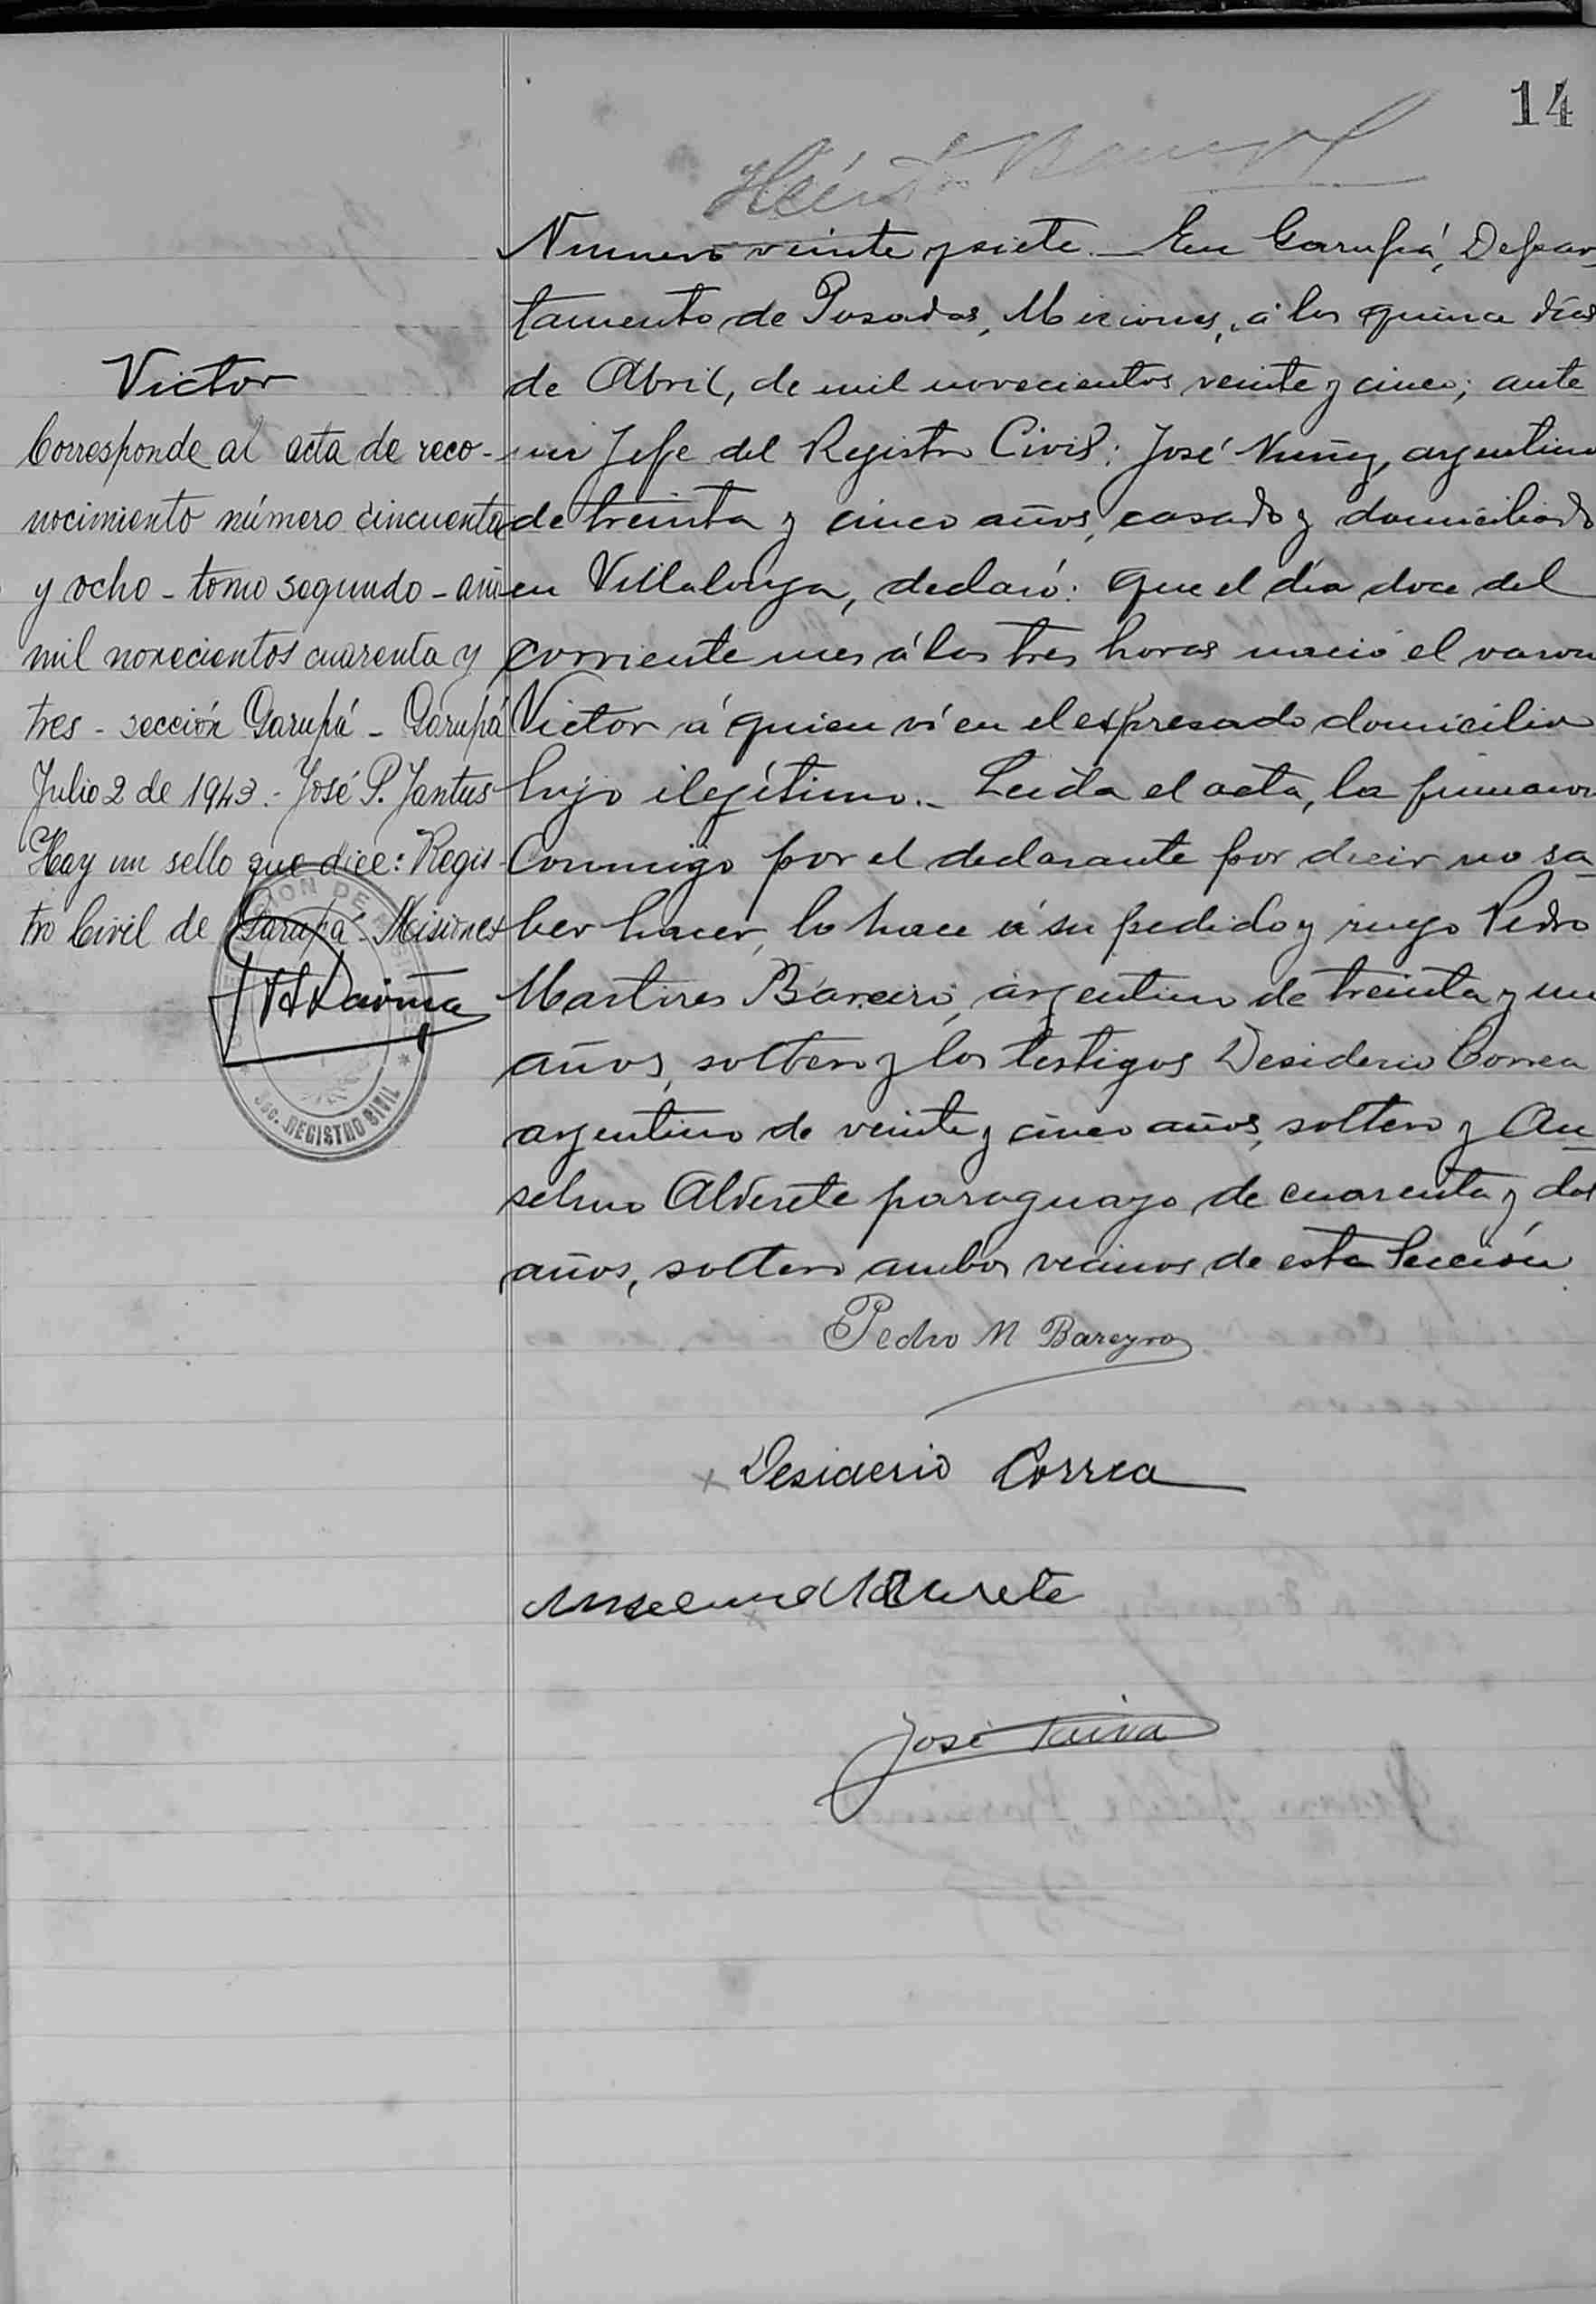 14
Numero veinte y siete. — En Garupá, Depar
tamento de Posadas, Misiones, á los quince días
de Abril, de mil novecientos veinte y cinco; ante
mi Jefe del Registro Civil: José Nuñez, argentino
de treinta y cinco años, casado y domiciliado
en Villalonga, declaró: que el día doce del
corriente mes á las tres horas nació el varon
Victor á quien ví en el expresado domicilio
hijo ilegítimo. — Leida el acta, la firmaron
conmigo por el declarante por decir no sa
ber hacer, lo hace á su pedido y ruego Pedro
Martires Bareiro, argentino de treinta y un
años, soltero y los testigos Desiderio Correa
argentino de veinte y cinco años, soltero y An
selmo Alderete paraguayo de cuarenta y dos
años, soltero ambos vecinos de esta Sección
Pedro M Bareyro
Desiderio Correa
Anselmo Alderete
José
Victor
Corresponde al acta de reco-
nocimiento número cincuenta
y ocho - tomo segundo - año
mil novecientos cuarenta y
tres - sección Garupá - Garupá
Julio 2 de 1943. - José P. Jantus
Hay un sello que dice: Regis-
tro Civil de Garupá - Misiones
REGISTRO CIVIL